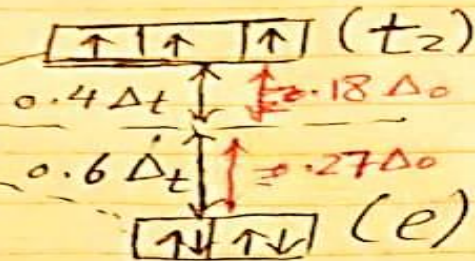 ↑ ↑ ↑ (t₂)
0.4 Δt 0.18 Δo
0.6 Δt 0.27 Δo
↑↓ ↑↓ (e)